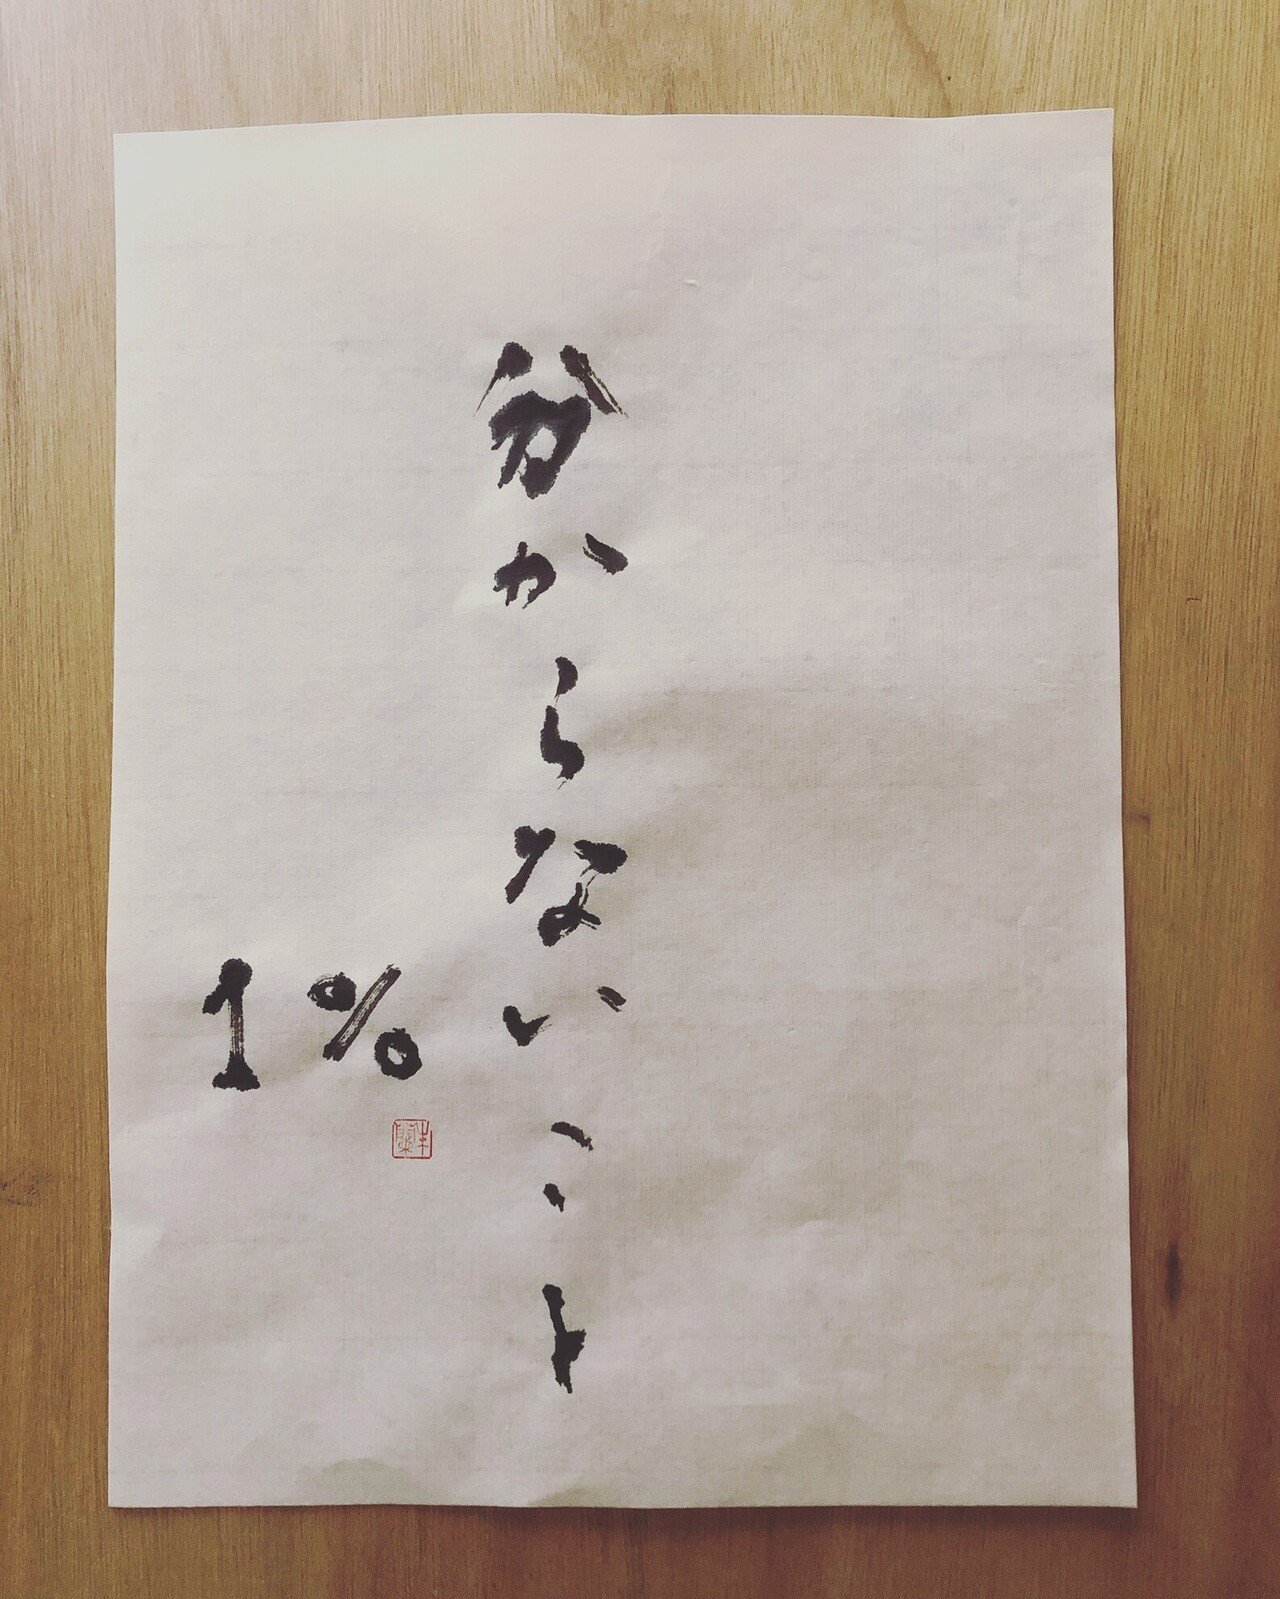 分からないこと
1%